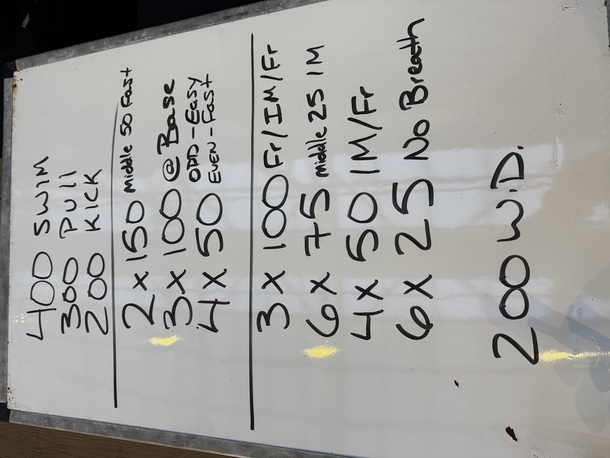 400 SWIM
300 PULL
200 KICK
2 x 150 middle 50 Fast
3 x 100 @ Base
4 x 50 ODD - Easy
EVEN - Fast
3 x 100 Fr/IM/Fr
6 x 75 middle 25 IM
4 x 50 IM/Fr
6 x 25 No Breath
200 W.D.